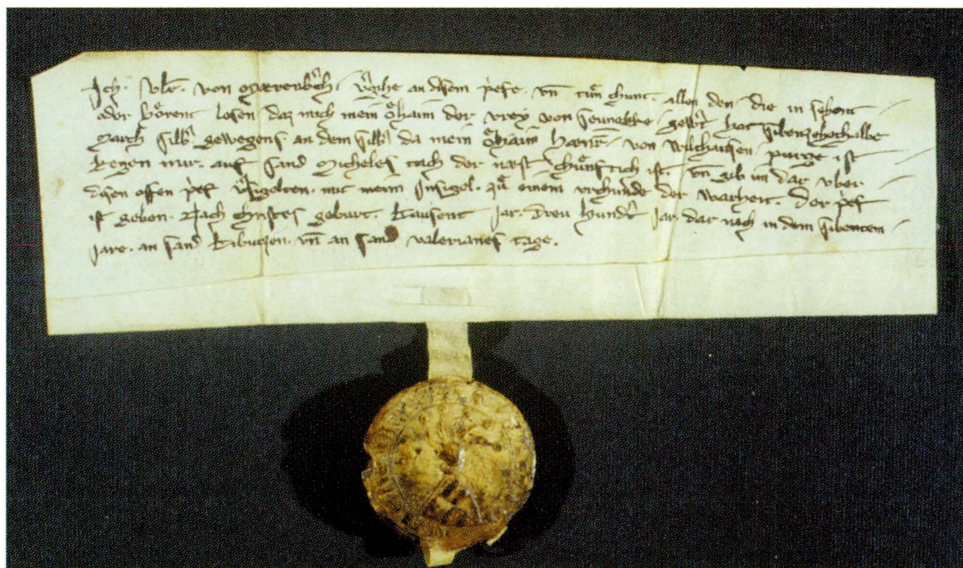 Ich · Ulr̄ · von Marenberch · v̓gihe an disem prief · vn̄ tuͦn chunt · allen den die in sehent
oder hoͤrent lesen daz mich mein oͤhaim der vrey von Seunekke gewert hat sibenzehethalbe
march silb̓s gewegens an dem silb̓ da mein oͤhaim Hainr̄ · von Wilhausen purge ist
kegen mir · auf sand Micheles tach der næst chuͤnftich ist · vn̄ gib im dar uber
disen offen prief v̓sigelten · mit meim Insigel · zuͦ einem urchunde der warheit · Der prief
ist geben · Nach Christes geburt · Tausent Jar · Dreu hundert Jar · dar nach in dem sibentem
Jare · an sand Tiburcien · vn̄ an sand Valerianes tage ·